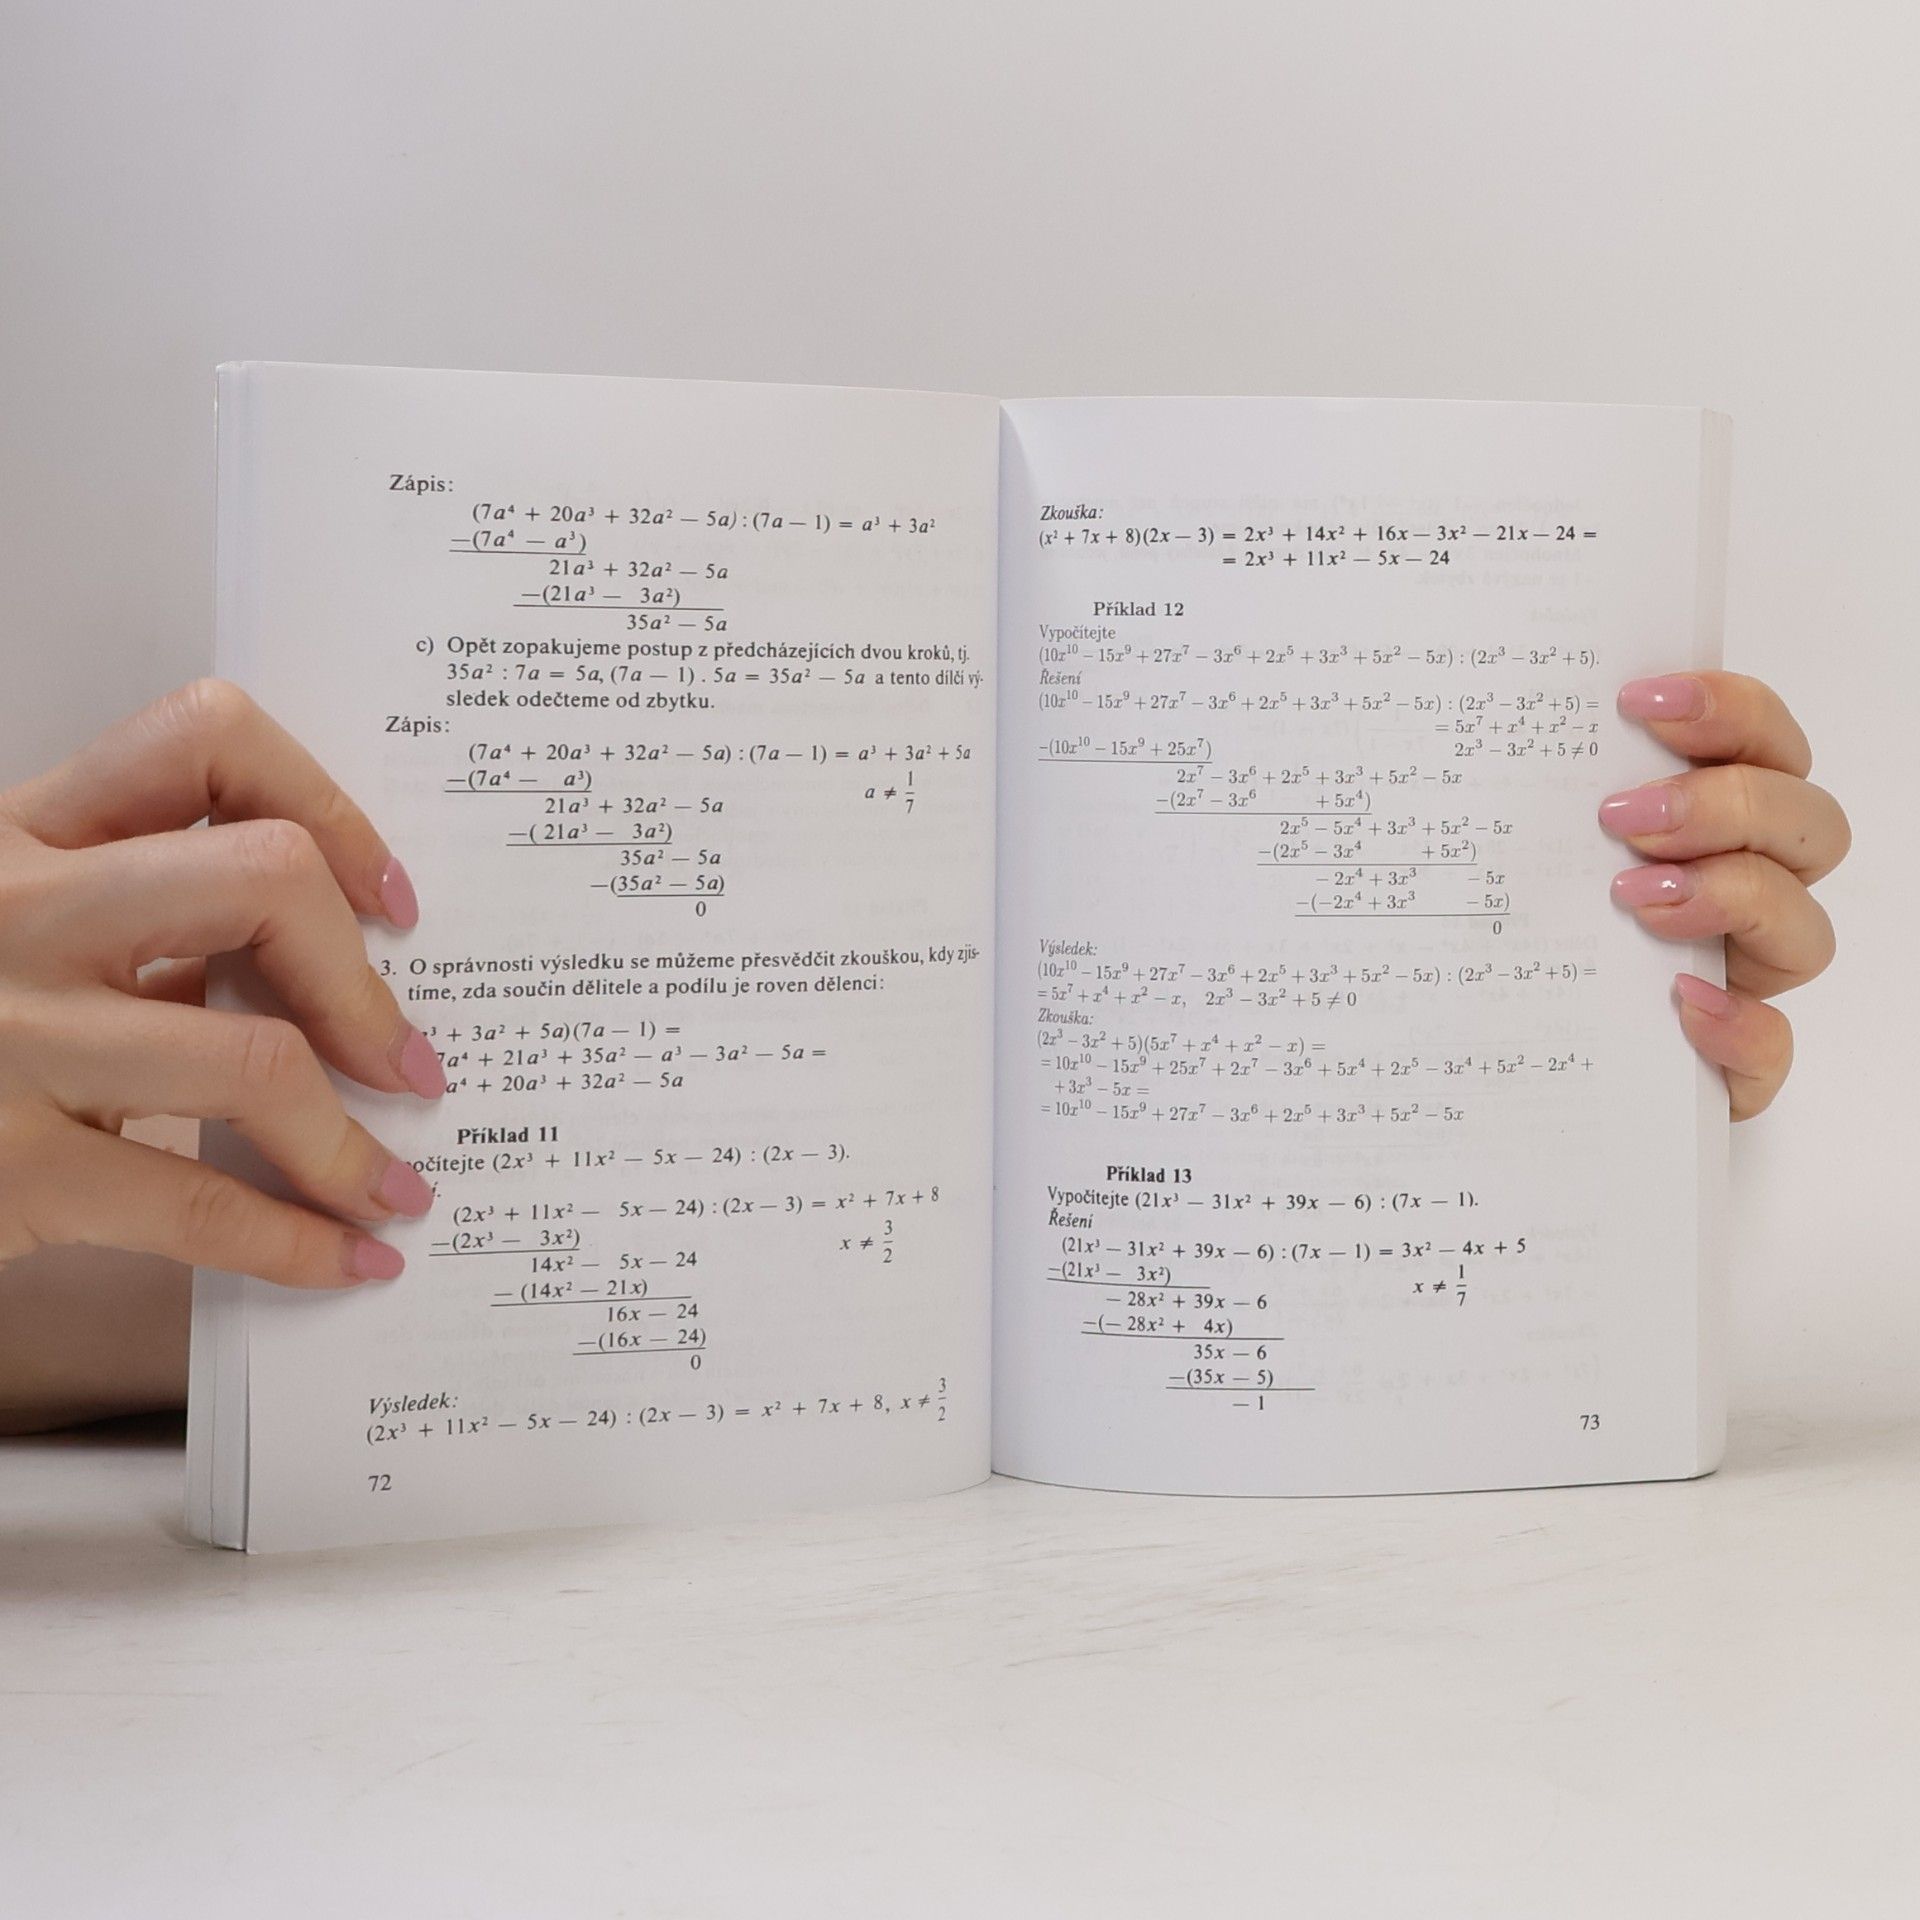 Zápis:
(7a⁴ + 20a³ + 32a² — 5a) : (7a — 1) = a³ + 3a²
—(7a⁴ — a³)
21a³ + 32a² — 5a
—(21a³ — 3a²)
35a² — 5a
c) Opět zopakujeme postup z předcházejících dvou kroků, tj.
35a² : 7a = 5a, (7a — 1) . 5a = 35a² — 5a a tento dílčí vý-
sledek odečteme od zbytku.
Zápis:
(7a⁴ + 20a³ + 32a² — 5a) : (7a — 1) = a³ + 3a² + 5a
—(7a⁴ — a³) a ≠ 1/7
21a³ + 32a² — 5a
—( 21a³ — 3a²)
35a² — 5a
—(35a² — 5a)
0
3. O správnosti výsledku se můžeme přesvědčit zkouškou, kdy zjis-
tíme, zda součin dělitele a podílu je roven dělenci:
³ + 3a² + 5a)(7a — 1) =
7a⁴ + 21a³ + 35a² — a³ — 3a² — 5a =
a⁴ + 20a³ + 32a² — 5a
Příklad 11
počítejte (2x³ + 11x² — 5x — 24) : (2x — 3).
(2x³ + 11x² — 5x — 24) : (2x — 3) = x² + 7x + 8
—(2x³ — 3x²) x ≠ 3/2
14x² — 5x — 24
— (14x² — 21x)
16x — 24
—(16x — 24)
0
Výsledek:
(2x³ + 11x² — 5x — 24) : (2x — 3) = x² + 7x + 8, x ≠ 3/2
72
Zkouška:
(x² + 7x + 8)(2x — 3) = 2x³ + 14x² + 16x — 3x² — 21x — 24 =
= 2x³ + 11x² — 5x — 24
Příklad 12
Vypočítejte
(10x¹⁰ − 15x⁹ + 27x⁷ − 3x⁶ + 2x⁵ + 3x³ + 5x² − 5x) : (2x³ − 3x² + 5).
Řešení
(10x¹⁰ − 15x⁹ + 27x⁷ − 3x⁶ + 2x⁵ + 3x³ + 5x² − 5x) : (2x³ − 3x² + 5) =
= 5x⁷ + x⁴ + x² − x
−(10x¹⁰ − 15x⁹ + 25x⁷) 2x³ − 3x² + 5 ≠ 0
2x⁷ − 3x⁶ + 2x⁵ + 3x³ + 5x² − 5x
−(2x⁷ − 3x⁶ + 5x⁴)
2x⁵ − 5x⁴ + 3x³ + 5x² − 5x
−(2x⁵ − 3x⁴ + 5x²)
− 2x⁴ + 3x³ − 5x
−(−2x⁴ + 3x³ − 5x)
0
Výsledek:
(10x¹⁰ − 15x⁹ + 27x⁷ − 3x⁶ + 2x⁵ + 3x³ + 5x² − 5x) : (2x³ − 3x² + 5) =
= 5x⁷ + x⁴ + x² − x, 2x³ − 3x² + 5 ≠ 0
Zkouška:
(2x³ − 3x² + 5)(5x⁷ + x⁴ + x² − x) =
= 10x¹⁰ − 15x⁹ + 25x⁷ + 2x⁷ − 3x⁶ + 5x⁴ + 2x⁵ − 3x⁴ + 5x² − 2x⁴ +
+ 3x³ − 5x =
= 10x¹⁰ − 15x⁹ + 27x⁷ − 3x⁶ + 2x⁵ + 3x³ + 5x² − 5x
Příklad 13
Vypočítejte (21x³ — 31x² + 39x — 6) : (7x — 1).
Řešení
(21x³ — 31x² + 39x — 6) : (7x — 1) = 3x² — 4x + 5
—(21x³ — 3x²) x ≠ 1/7
— 28x² + 39x — 6
—(— 28x² + 4x)
35x — 6
—(35x — 5)
— 1
73